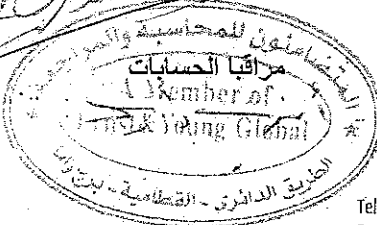 المتضامنون للمحاسبة والمراجعة
مراقبا الحسابات
A Member of
Ernst & Young Global
الطريق الدائرى - القطامية -
Tel